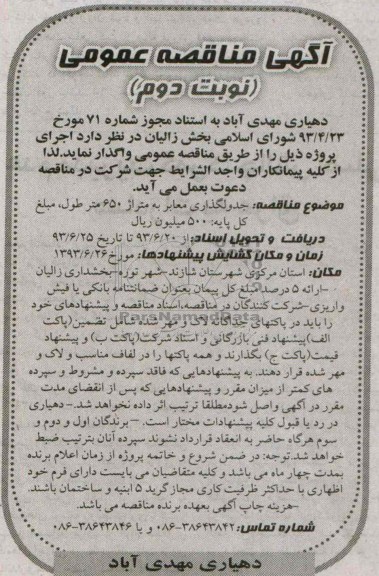 آگهی مناقصه عمومی
(نوبت دوم)
دهیاری مهدی آباد به استناد مجوز شماره ۷۱ مورخ
۹۳/۴/۲۳ شورای اسلامی بخش زالیان در نظر دارد اجرای
پروژه ذیل را از طریق مناقصه عمومی واگذار نماید.لذا
از کلیه پیمانکاران واجد الشرایط جهت شرکت در مناقصه
دعوت بعمل می آید.
موضوع مناقصه: جدولگذاری معابر به متراژ ۶۵۰ متر طول، مبلغ
کل پایه: ۵۰۰ میلیون ریال
دریافت و تحویل اسناد: از ۹۳/۶/۲۰ تا تاریخ ۹۳/۶/۲۵
زمان و مکان گشایش پیشنهادها: مورخ ۱۳۹۳/۶/۲۶
مکان: استان مرکزی شهرستان شازند -شهر توره -بخشداری زالیان
-ارائه ۵ درصد مبلغ کل پیمان بعنوان ضمانتنامه بانکی یا فیش
واریزی-شرکت کنندگان در مناقصه،اسناد مناقصه و پیشنهادهای خود
را باید در پاکتهای جداگانه لاک و مهر شده شامل تضمین(پاکت
الف)پیشنهاد فنی بازرگانی و اسناد شرکت(پاکت ب) و پیشنهاد
قیمت(پاکت ج) بگذارند و همه پاکتها را در لفاف مناسب و لاک و
مهر شده قرار دهند. به پیشنهادهایی که فاقد سپرده و مشروط و سپرده
های کمتر از میزان مقرر و پیشنهادهایی که پس از انقضای مدت
مقرر در آگهی واصل شودمطلقا ترتیب اثر داده نخواهد شد.- دهیاری
در رد یا قبول کلیه پیشنهادات مختار است. - برندگان اول و دوم و
سوم هرگاه حاضر به انعقاد قرارداد نشوند سپرده آنان بترتیب ضبط
خواهد شد.توجه: در ضمن شروع و خاتمه پروژه از زمان اعلام برنده
بمدت چهار ماه می باشد و کلیه متقاضیان می بایست دارای فرم خود
اظهاری با حداکثر ظرفیت کاری مجاز گرید ۵ ابنیه و ساختمان باشند.
-هزینه چاپ آگهی بعهده برنده مناقصه می باشد.
شماره تماس: ۳۸۶۴۳۸۴۲-۰۸۶ و یا ۳۸۶۴۳۸۴۶-۰۸۶
دهیاری مهدی آباد
ParsNamadData